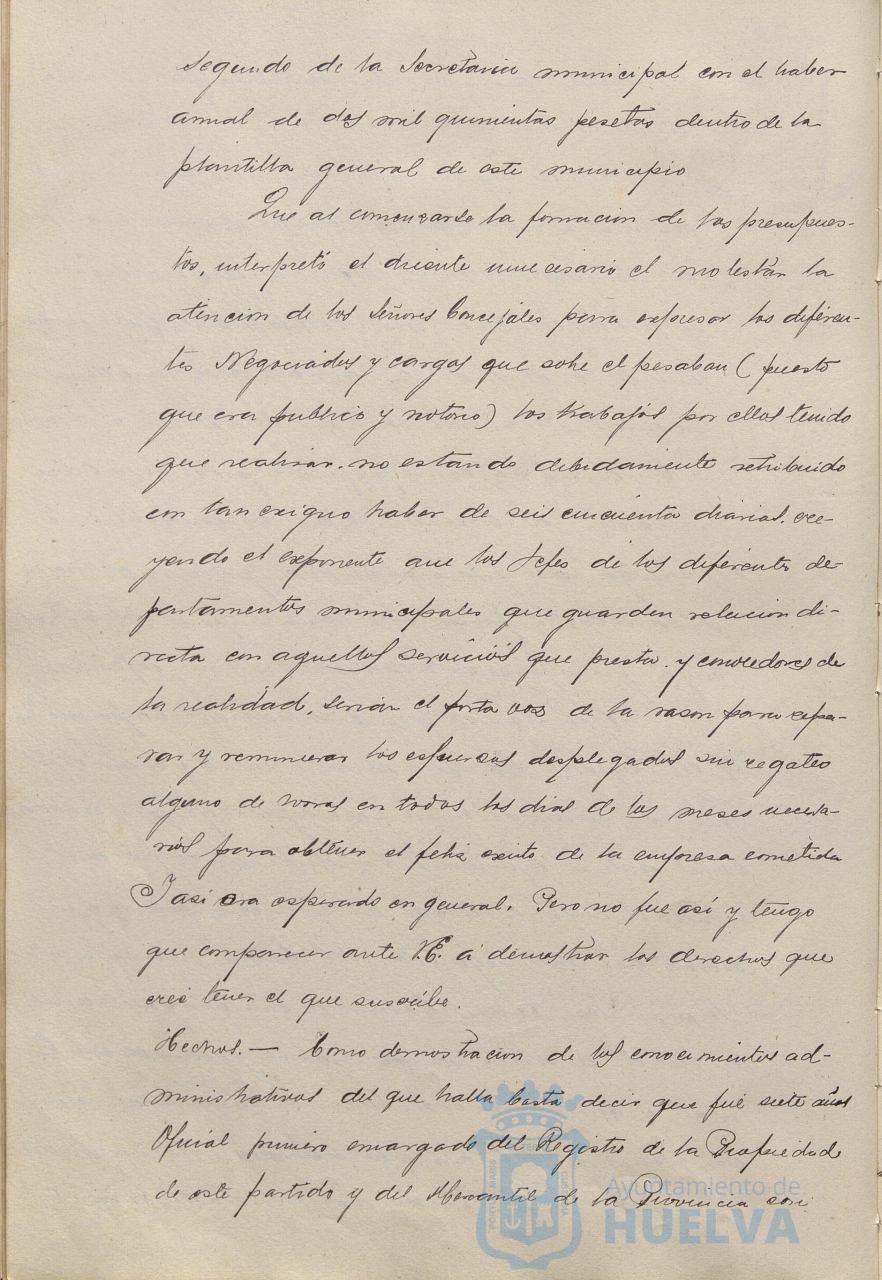 segundo de la Secretaria municipal con el haber
anual de dos mil quinientas pesetas dentro de la
plantilla general de este municipio
Que al comenzarse la formacion de los presupues-
tos, interpretó el dicente innecesario el molestar la
atencion de los Señores Concejales para expresar los diferen-
tes Negociados y cargos que sobre el pesaban (puesto
que era publico y notorio) los trabajos por ellos tenido
que realizar. no estando debidamente retribuido
con tan exiguo haber de seis cincuenta diarias. cre-
yendo el exponente que los Jefes de los diferentes de-
partamentos municipales que guarden relacion di-
recta con aquellos servicios que presta. y conocedores de
la realidad, serian el porta voz de la razon para repa-
rar y remunerar los esfuerzos desplegados sin regateo
alguno de horas en todos los dias de los meses necesa-
rios para obtener el feliz exito de la empresa cometida
Y asi era esperado en general. Pero no fue así y tengo
que comparecer ante V.E. á demostrar los derechos que
creé tener el que suscribe.
Hechos.— Como demostracion de los conocimientos ad-
ministrativos del que habla basta decir que fué siete años
Oficial primero encargado del Registro de la Propiedad
de este partido y del Mercantil de la Provincia con
Ayuntamiento de
HUELVA